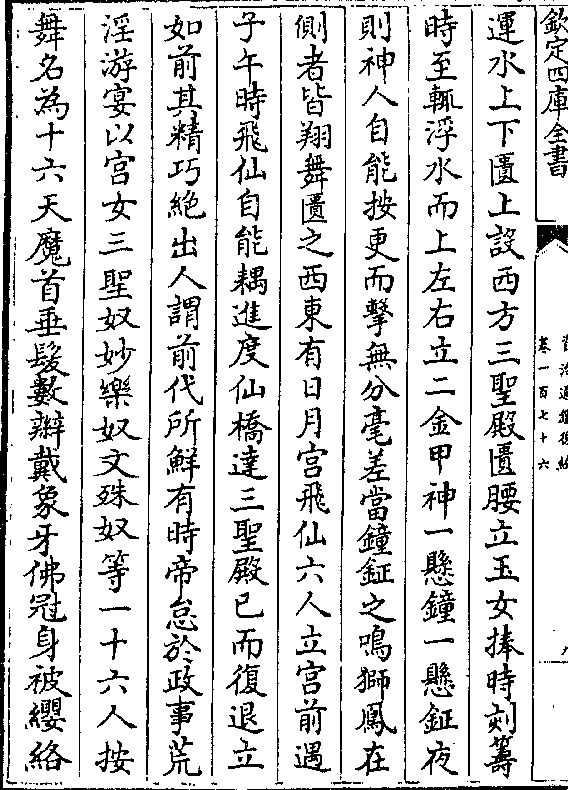 欽定四庫全書
資治通鑑後編
卷一百七十六
八
運水上下匱上設西方三聖殿匱腰立玉女捧時刻籌
時至輒浮水而上左右立二金甲神一懸鐘一懸鉦夜
則神人自能按更而擊無分毫差當鐘鉦之鳴獅鳳在
側者皆翔舞匱之西東有日月宮飛仙六人立宮前遇
子午時飛仙自能耦進度仙橋達三聖殿已而復退立
如前其精巧絶出人謂前代所鮮有時帝怠於政事荒
淫游宴以宮女三聖奴妙樂奴文殊奴等一十六人按
舞名為十六天魔首垂髮數辮戴象牙佛冠身被纓絡